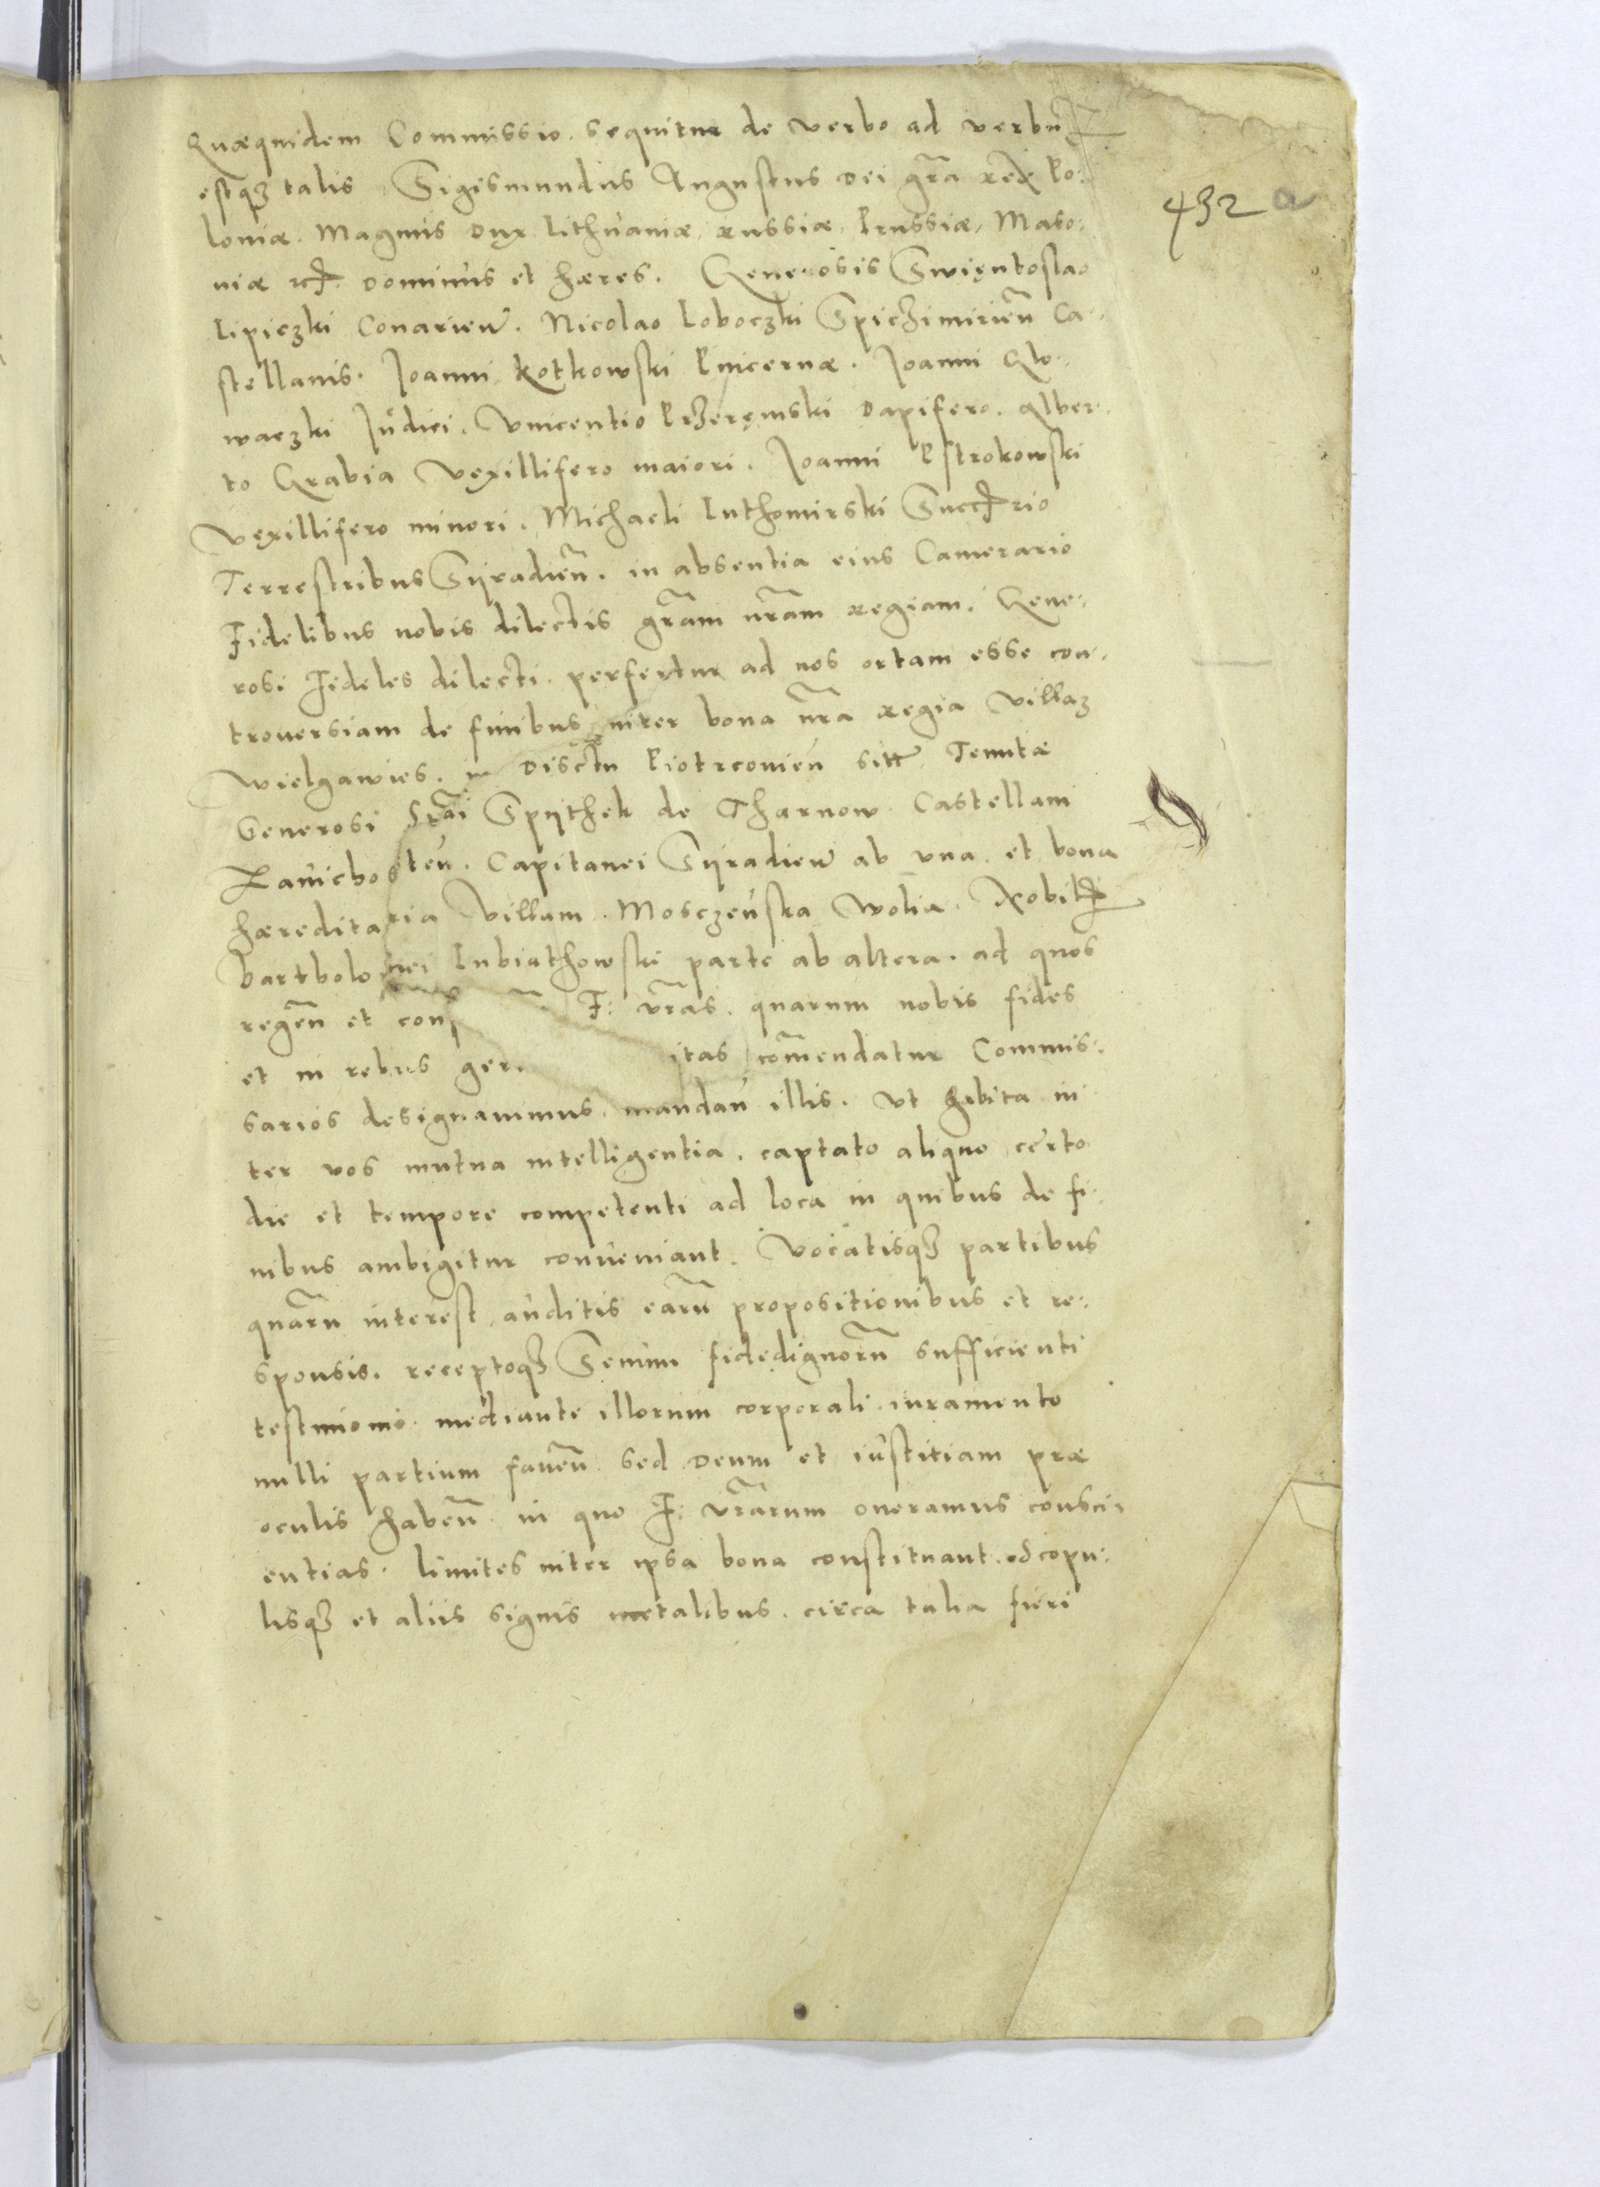 Quæquidem Commissio sequitur de verbo ad verbũ
estq3 talis Sigismundus Augustus Dei gr̃a rex Po:
loniæ. Magnus Dux Lithuaniæ, Russiæ, Prussiæ, Maso:
uiæ etc. Dominus et hæres. Generosis Swiẹntoslao
Lipiczki Conarieñ. Nicolao Loboczki Spiczimirieñ Ca:
stellanis. Joanni Kotkowski Pincernæ. Joanni Glo:
waczki Judici. Vincentio Przeręmski Dapifero. Alber:
to Grabia Vexillifero maiori. Joanni Pstrokowski
Vexillifero minori. Michaeli Luthomirski
Terrestribus Syradieñ. in absentia eius Camerario
Fidelibus nobis dilectis gr̃am nr̃am regiam. Gene:
rosi Fideles dilecti. perfertur ad nos ortam esse con:
trouersiam de finibus inter bona nr̃a regia Villa3
Wielgawies. in Disctu Piotrconieñ sitt. Tenutæ
Generosi Spythek de Tharnow Castellani
Zauichosteñ. Capitanei Syradieñ ab vna. et bona
hæreditaria Villam. Mosczeńska Wolia. Nobil
bartholomei Lubiathowski parte ab altera. ad quos
regeñ et con F: vr̃as. quarum nobis fides
et in rebus ger. itas com̃endatur Commis:
sarios designauimus. mandañ illis. Vt habita in
ter vos mutua intelligentia. captato aliquo certo
die et tempore competenti ad loca in quibus de fi:
nibus ambigitur conueniant. Vocatisq3 partibus
quarũ interest auditis earũ propositionibus et re:
sponsis. receptoq3 Senum fidedignorũ sufficienti
testimonio mediante illorum corporali iuramento
nulli partium faueñ sed Deum et iustitiam præ
oculis habeñ in quo F: vr̃arum oneramus consci:
entias. limites inter ipsa bona constituant. scopu:
lisq3 et aliis signis metalibus. circa talia fieri
432 a